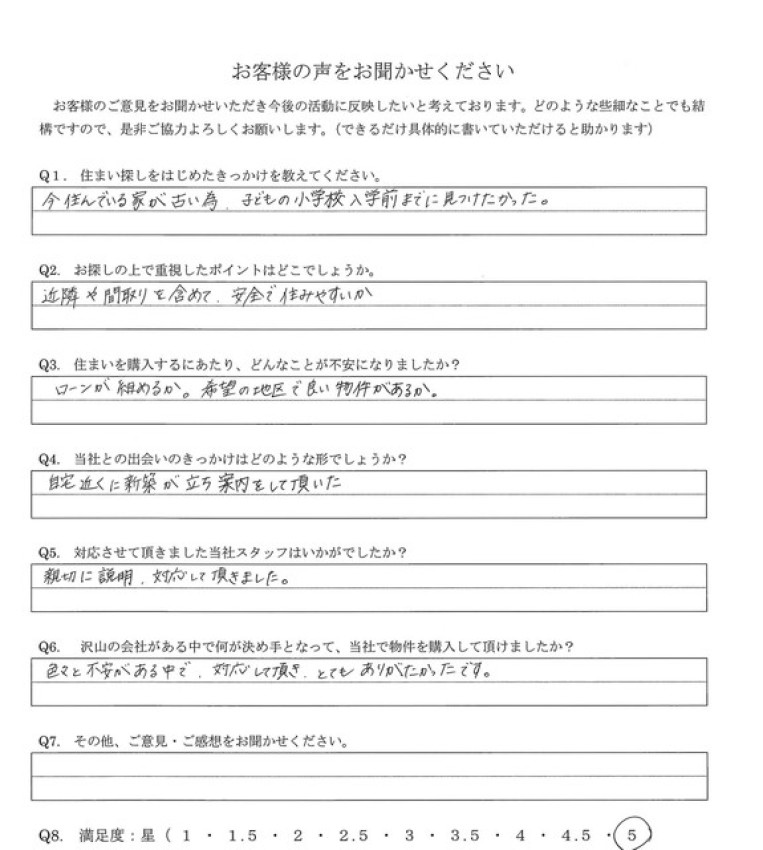 お客様の声をお聞かせください
お客様のご意見をお聞かせいただき今後の活動に反映したいと考えております。どのような些細なことでも結
構ですので、是非ご協力よろしくお願いします。（できるだけ具体的に書いていただけると助かります）
Q1. 住まい探しをはじめたきっかけを教えてください。
今住んでいる家が古い為、子どもの小学校入学前までに見つけたかった。
Q2. お探しの上で重視したポイントはどこでしょうか。
近隣や間取りを含めて、安全で住みやすいか
Q3. 住まいを購入するにあたり、どんなことが不安になりましたか？
ローンが組めるか。希望の地区で良い物件があるか。
Q4. 当社との出会いのきっかけはどのような形でしょうか？
自宅近くに新築が立ち案内をして頂いた
Q5. 対応させて頂きました当社スタッフはいかがでしたか？
親切に説明、対応して頂きました。
Q6. 沢山の会社がある中で何が決め手となって、当社で物件を購入して頂けましたか？
色々と不安がある中で、対応して頂き、とてもありがたかったです。
Q7. その他、ご意見・ご感想をお聞かせください。
Q8. 満足度：星（ 1 ・ 1.5 ・ 2 ・ 2.5 ・ 3 ・ 3.5 ・ 4 ・ 4.5 ・ 5 ）